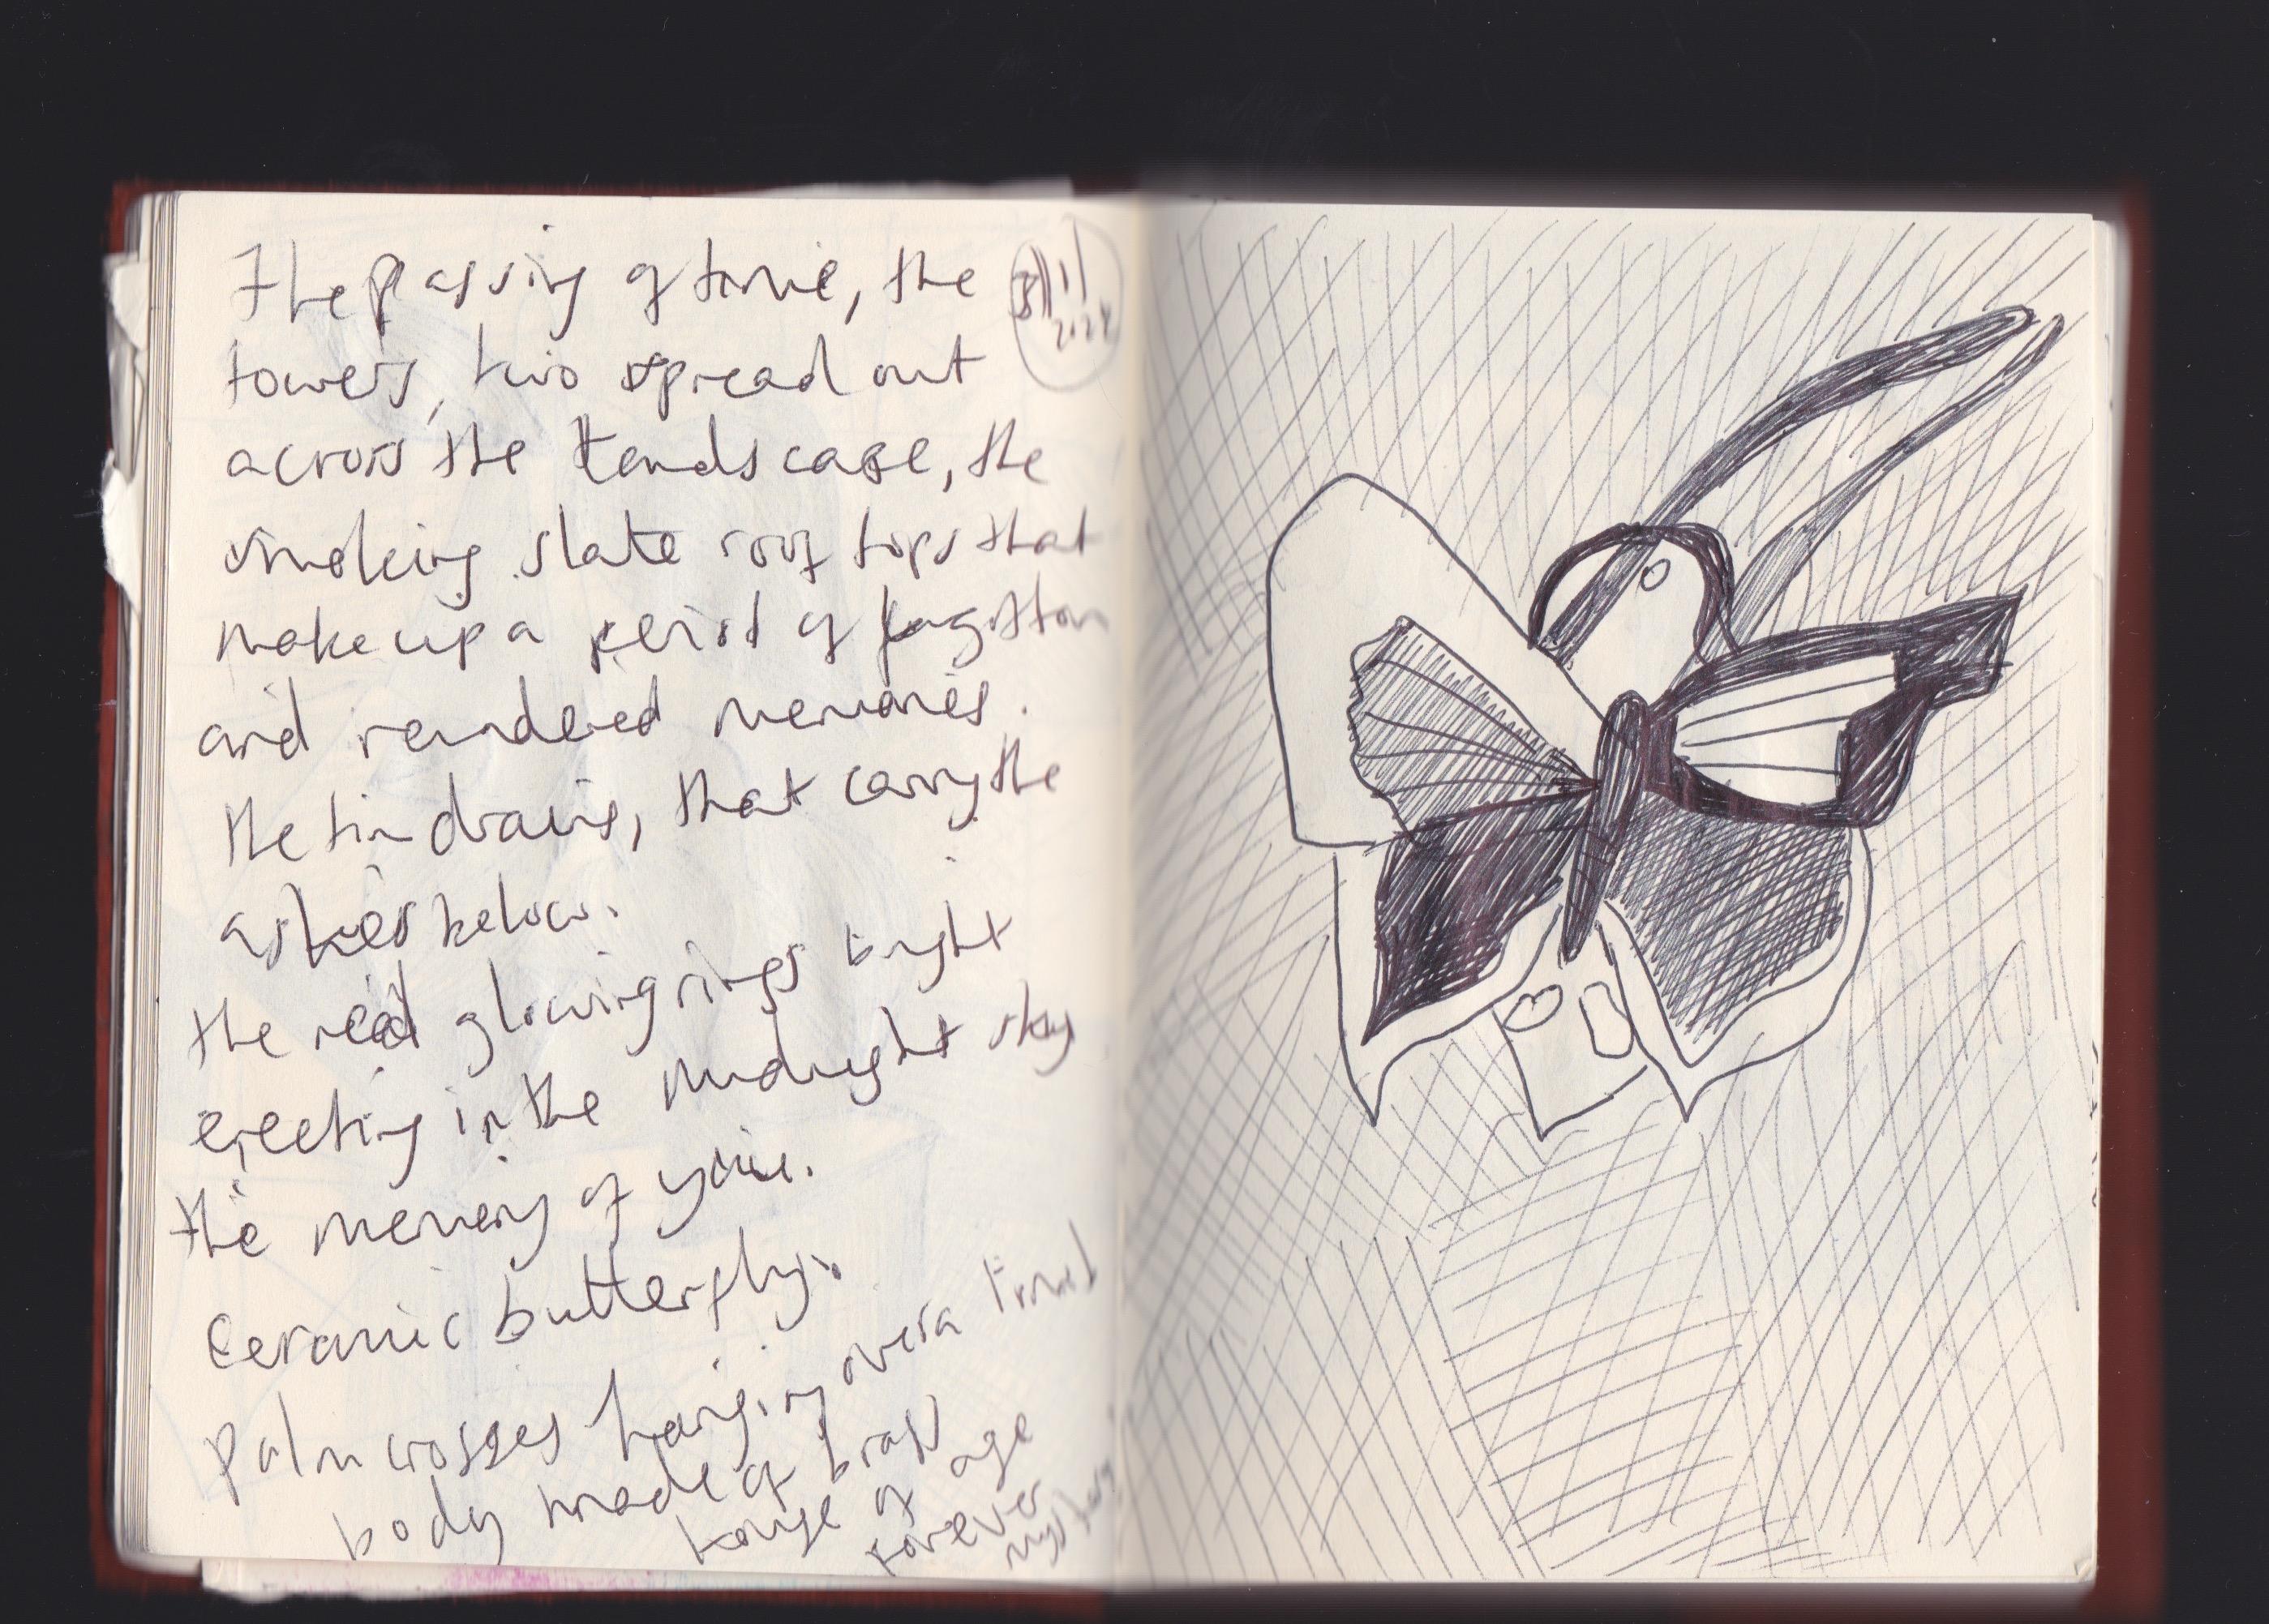 The passing of time, the
towers, two spread out
across the landscape, the
smoking slate roof tops that
make up a period of
and rendered memories.
the tin drains, that carry the
ashes below.
the red glowing rings bright
erecting in the midnight sky
the memory of
ceramic butterfly.
palm crosses hanging over a
body made of brass
house of age
forever
2024